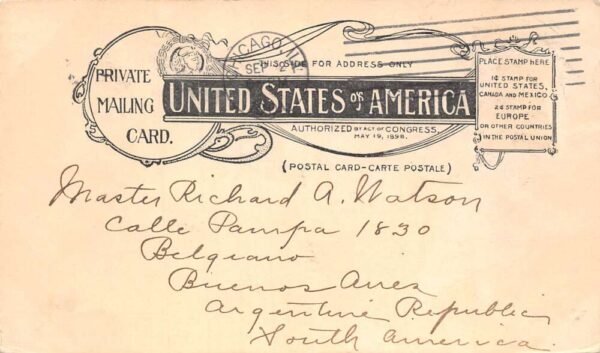 CHICAGO, ILL.
SEP 2
THIS SIDE FOR ADDRESS ONLY
PRIVATE
MAILING
CARD.
UNITED STATES OF AMERICA
AUTHORIZED BY ACT OF CONGRESS,
MAY 19, 1898.
(POSTAL CARD-CARTE POSTALE)
PLACE STAMP HERE
1¢ STAMP FOR
UNITED STATES,
CANADA AND MEXICO
2¢ STAMP FOR
EUROPE
OR OTHER COUNTRIES
IN THE POSTAL UNION
Master Richard A. Watson
Calle Pampa 1830
Belgrano
Buenos Aires
Argentine Republic
South America.